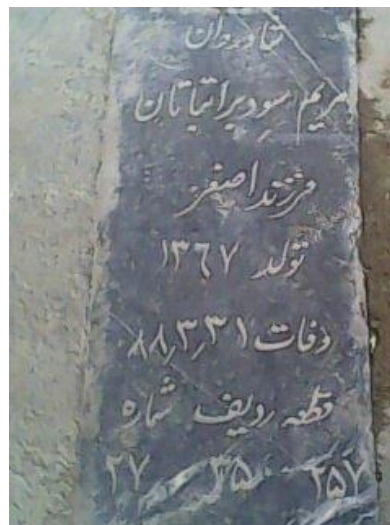 شادروان
مریم سودبرانتیاتان
فرزند اصغر
تولد ۱۳۶۷
وفات ۸۸٫۳٫۳۱
قطعه ردیف شماره
۲۵۷ ۳۵ ۲۷